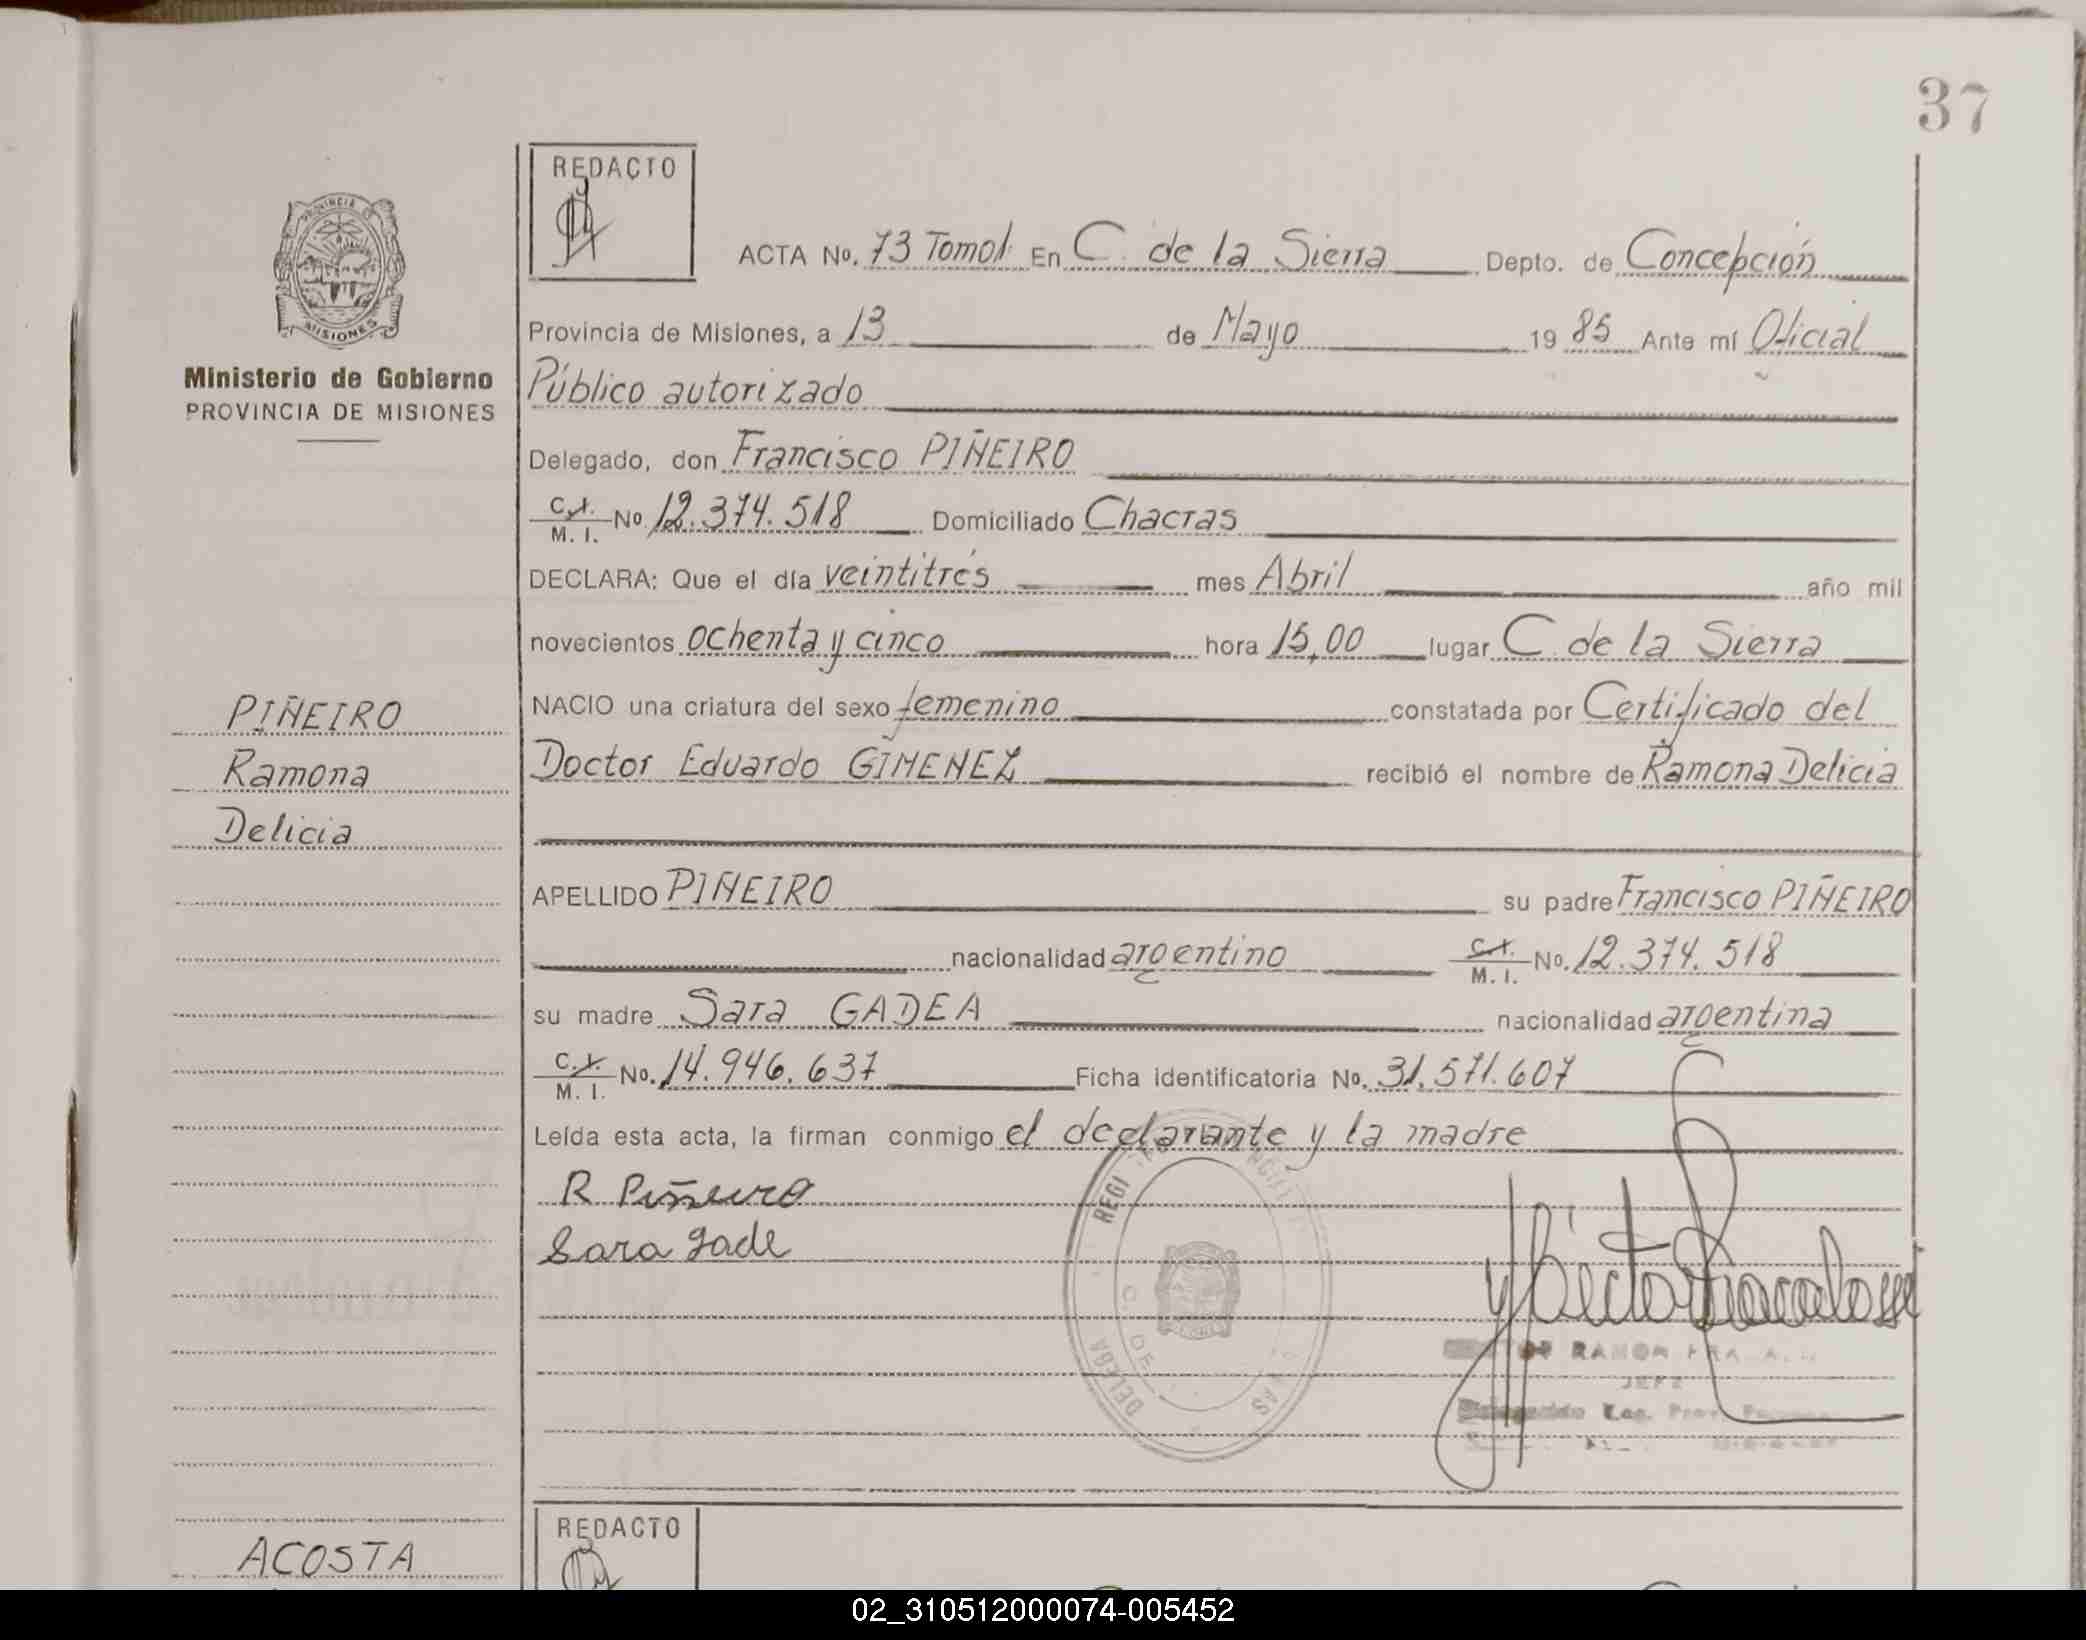 37
REDACTO
PROVINCIA DE
MISIONES
ACTA No. 73 Tomo I En C. de la Sierra Depto. de Concepción
Provincia de Misiones, a 13 de Mayo 1985 Ante mí Oficial
Ministerio de Gobierno
PROVINCIA DE MISIONES
Público autorizado
Delegado, don Francisco PIÑEIRO
C.I. M. I. No. 12.374.518 Domiciliado Chacras
DECLARA: Que el día veintitrés mes Abril año mil
novecientos ochenta y cinco hora 15,00 lugar C. de la Sierra
PIÑEIRO
Ramona
Delicia
NACIO una criatura del sexo femenino constatada por Certificado del
Doctor Eduardo GIMENEZ recibió el nombre de Ramona Delicia
APELLIDO PIÑEIRO su padre Francisco PIÑEIRO
nacionalidad argentino C.I. M. I. No. 12.374.518
su madre Sara GADEA nacionalidad argentina
C.I. M. I. No. 14.946.637 Ficha identificatoria No. 31.571.607
Leída esta acta, la firman conmigo el declarante y la madre
R Piñeiro
Sara gade
C. DE
RAMON
JEFE
ACOSTA
REDACTO
02_310512000074-005452